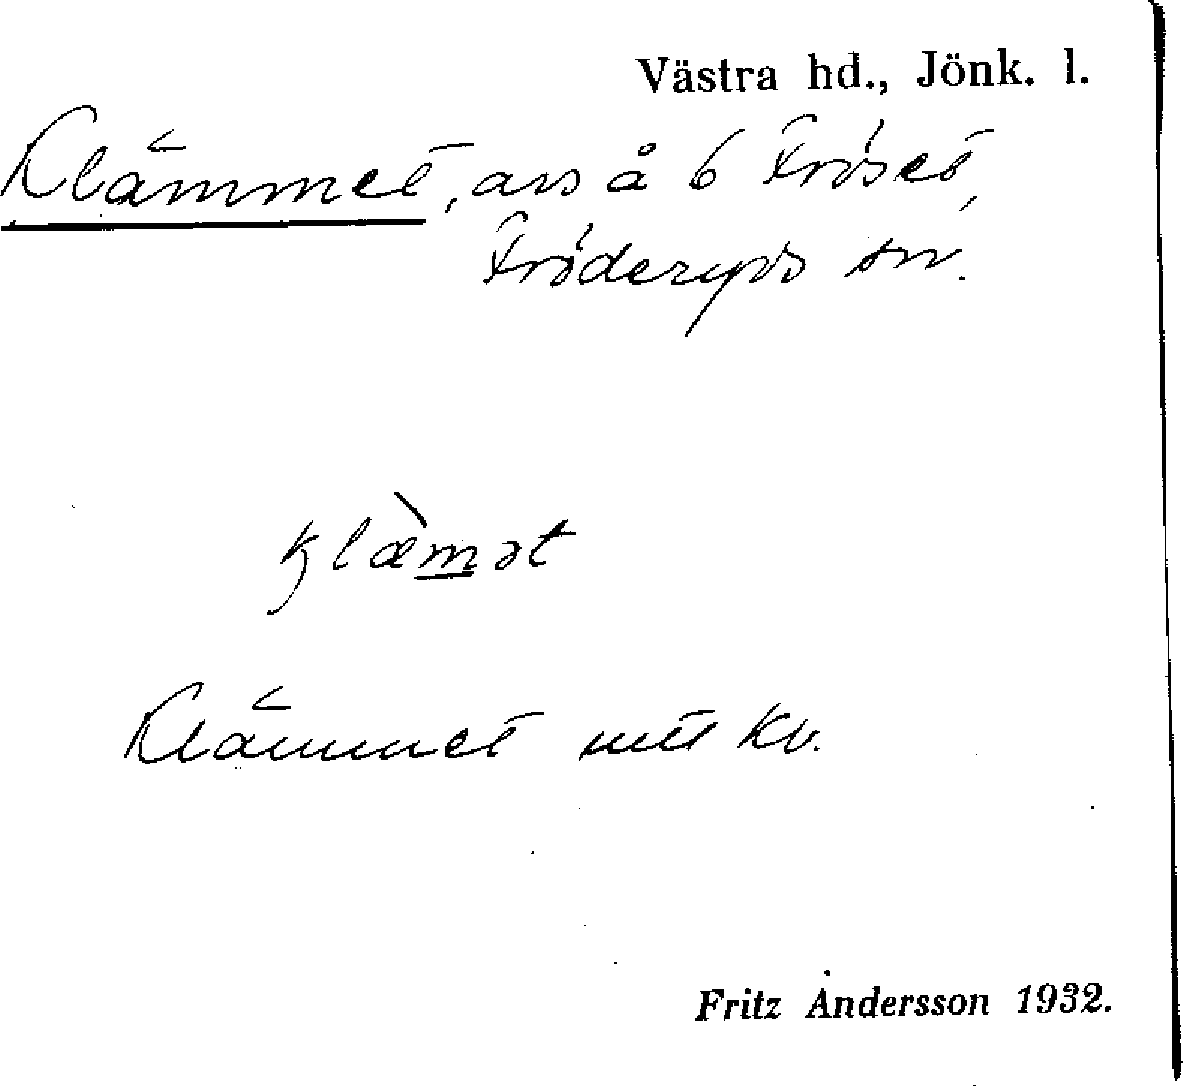 Västra hd., Jönk. l.
Klämmet, avs å 6 Fröset,
Fröderyds sn.
klæ̀mət
Klämmet utt Kv.
Fritz Andersson 1932.